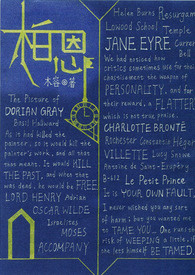 相恩
木容◎著
The Picture of
DORIAN GRAY
Basil Hallward
As it had killed the
painter, so it would kill the
painter's work, and all that
that means. It would KILL
THE PAST, and when that
was dead, he would be FREE
LORD HENRY Adrian
OSCAR WILDE
Israelites
MOSES
ACCOMPANY
Helen Burns Resurgam
Lowood School Temple
JANE EYRE Currer
Bell
We had noticed how
critics sometimes use for the
chastisement the weapon of
PERSONALITY, and for
their reward, a FLATTERY
which is not true praise.
CHARLOTTE BRONTË
Rochester Constantin Héger
VILLETTE Lucy Snowe
B-612 Le Petit Prince
It is YOUR OWN FAULT,
I never wished you any sort
of harm; but you wanted me
to TAME YOU... One runs the
risk of WEEPING a little, if
one lets himself BE TAMED.